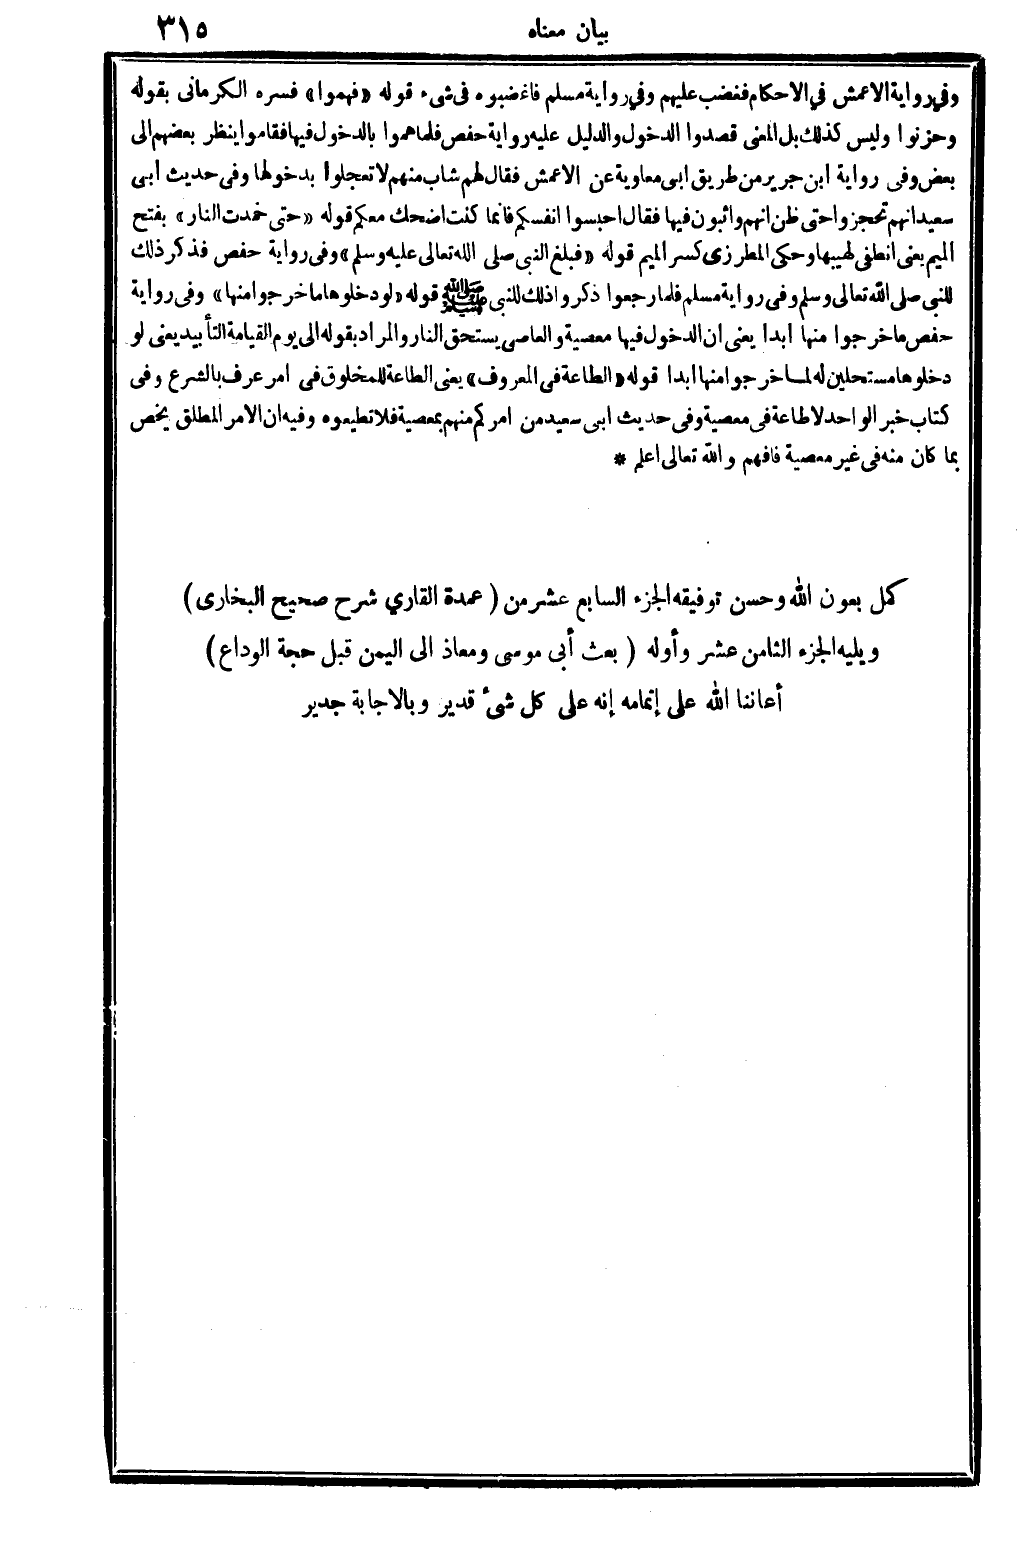 بيان معناه ٣١٥
وفي رواية الاعمش في الاحكام فغضب عليهم وفي رواية مسلم فاغضبوه في شيء قوله «فهموا» فسره الكرماني بقوله
وحزنوا وليس كذلك بل المعنى قصدوا الدخول والدليل عليه رواية حفص فلما هموا بالدخول فيها فقاموا ينظر بعضهم الى
بعض وفي رواية ابن جرير من طريق ابي معاوية عن الاعمش فقال لهم شاب منهم لا تعجلوا بدخولها وفي حديث ابى
سعيد انهم تحجزوا حتى ظن انهم واثبون فيها فقال احبسوا انفسكم فانما كنت اضحك معكم قوله «حتى خمدت النار» بفتح
الميم يعنى انطفى لهيبها وحكى المطرزى كسر الميم قوله «فبلغ النبى صلى الله تعالى عليه وسلم» وفى رواية حفص فذكر ذلك
للنبى صلى الله تعالى وسلم وفى رواية مسلم فلما رجعوا ذكروا ذلك للنبى ﷺ قوله «لو دخلوها ما خرجوا منها» وفى رواية
حفص ما خرجوا منها ابدا يعنى ان الدخول فيها معصية والعاصى يستحق النار والمراد بقوله الى يوم القيامة التأبيد يعنى لو
دخلوها مستحلين له لما خرجوا منها ابدا قوله «الطاعة فى المعروف» يعنى الطاعة للمخلوق فى امر عرف بالشرع وفى
كتاب خبر الواحد لا طاعة فى معصية وفى حديث ابى سعيد من امركم منهم بمعصية فلا تطيعوه وفيه ان الامر المطلق يخص
بما كان منه فى غير معصية فافهم والله تعالى اعلم *
كمل بعون الله وحسن توفيقه الجزء السابع عشر من (عمدة القاري شرح صحيح البخارى)
ويليه الجزء الثامن عشر وأوله (بعث أبى موسى ومعاذ الى اليمن قبل حجة الوداع)
أعاننا الله على إتمامه إنه على كل شىء قدير وبالاجابة جدير